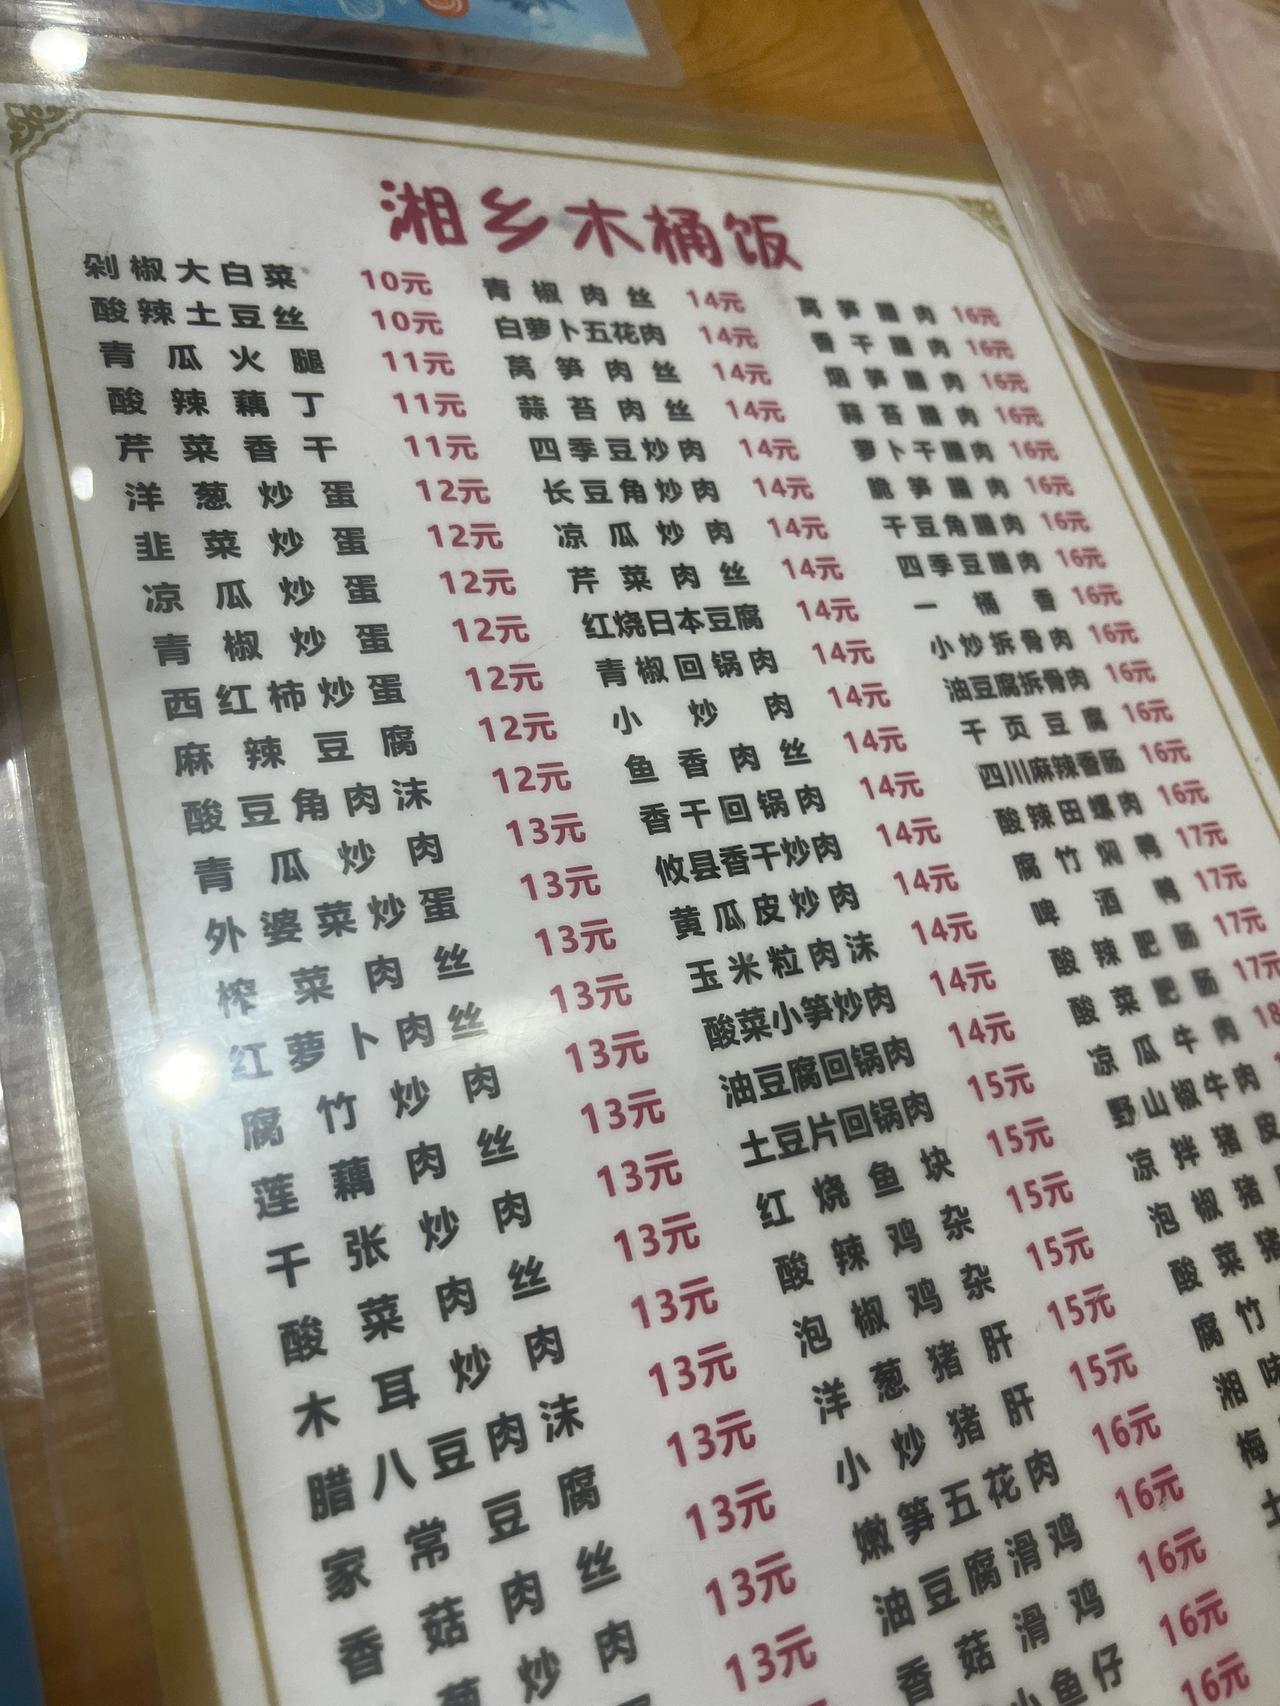 湘乡木桶饭
剁椒大白菜 10元
酸辣土豆丝 10元
青瓜火腿 11元
酸辣藕丁 11元
芹菜香干 11元
洋葱炒蛋 12元
韭菜炒蛋 12元
凉瓜炒蛋 12元
青椒炒蛋 12元
西红柿炒蛋 12元
麻辣豆腐 12元
酸豆角肉沫 12元
青瓜炒肉 13元
外婆菜炒蛋 13元
榨菜肉丝 13元
红萝卜肉丝 13元
腐竹炒肉 13元
莲藕肉丝 13元
千张炒肉 13元
酸菜肉丝 13元
木耳炒肉 13元
腊八豆肉沫 13元
家常豆腐 13元
香菇肉丝 13元
炒肉 13元
13元
青椒肉丝 14元
白萝卜五花肉 14元
莴笋肉丝 14元
蒜苔肉丝 14元
四季豆炒肉 14元
长豆角炒肉 14元
凉瓜炒肉 14元
芹菜肉丝 14元
红烧日本豆腐 14元
青椒回锅肉 14元
小炒肉 14元
鱼香肉丝 14元
香干回锅肉 14元
攸县香干炒肉 14元
黄瓜皮炒肉 14元
玉米粒肉沫 14元
酸菜小笋炒肉 14元
油豆腐回锅肉 14元
土豆片回锅肉 15元
红烧鱼块 15元
酸辣鸡杂 15元
泡椒鸡杂 15元
洋葱猪肝 15元
小炒猪肝 15元
嫩笋五花肉 16元
油豆腐滑鸡 16元
香菇滑鸡 16元
小鱼仔 16元
16元
莴笋腊肉 16元
香干腊肉 16元
烟笋腊肉 16元
蒜苔腊肉 16元
萝卜干腊肉 16元
脆笋腊肉 16元
干豆角腊肉 16元
四季豆腊肉 16元
一桶香 16元
小炒拆骨肉 16元
油豆腐拆骨肉 16元
千页豆腐 16元
四川麻辣香肠 16元
酸辣田螺肉 16元
腐竹焖鸭 17元
啤酒鸭 17元
酸辣肥肠 17元
酸菜肥肠 17元
凉瓜牛肉 18
野山椒牛肉
凉拌猪皮
泡椒猪
酸菜猪
腐竹
湘味
梅